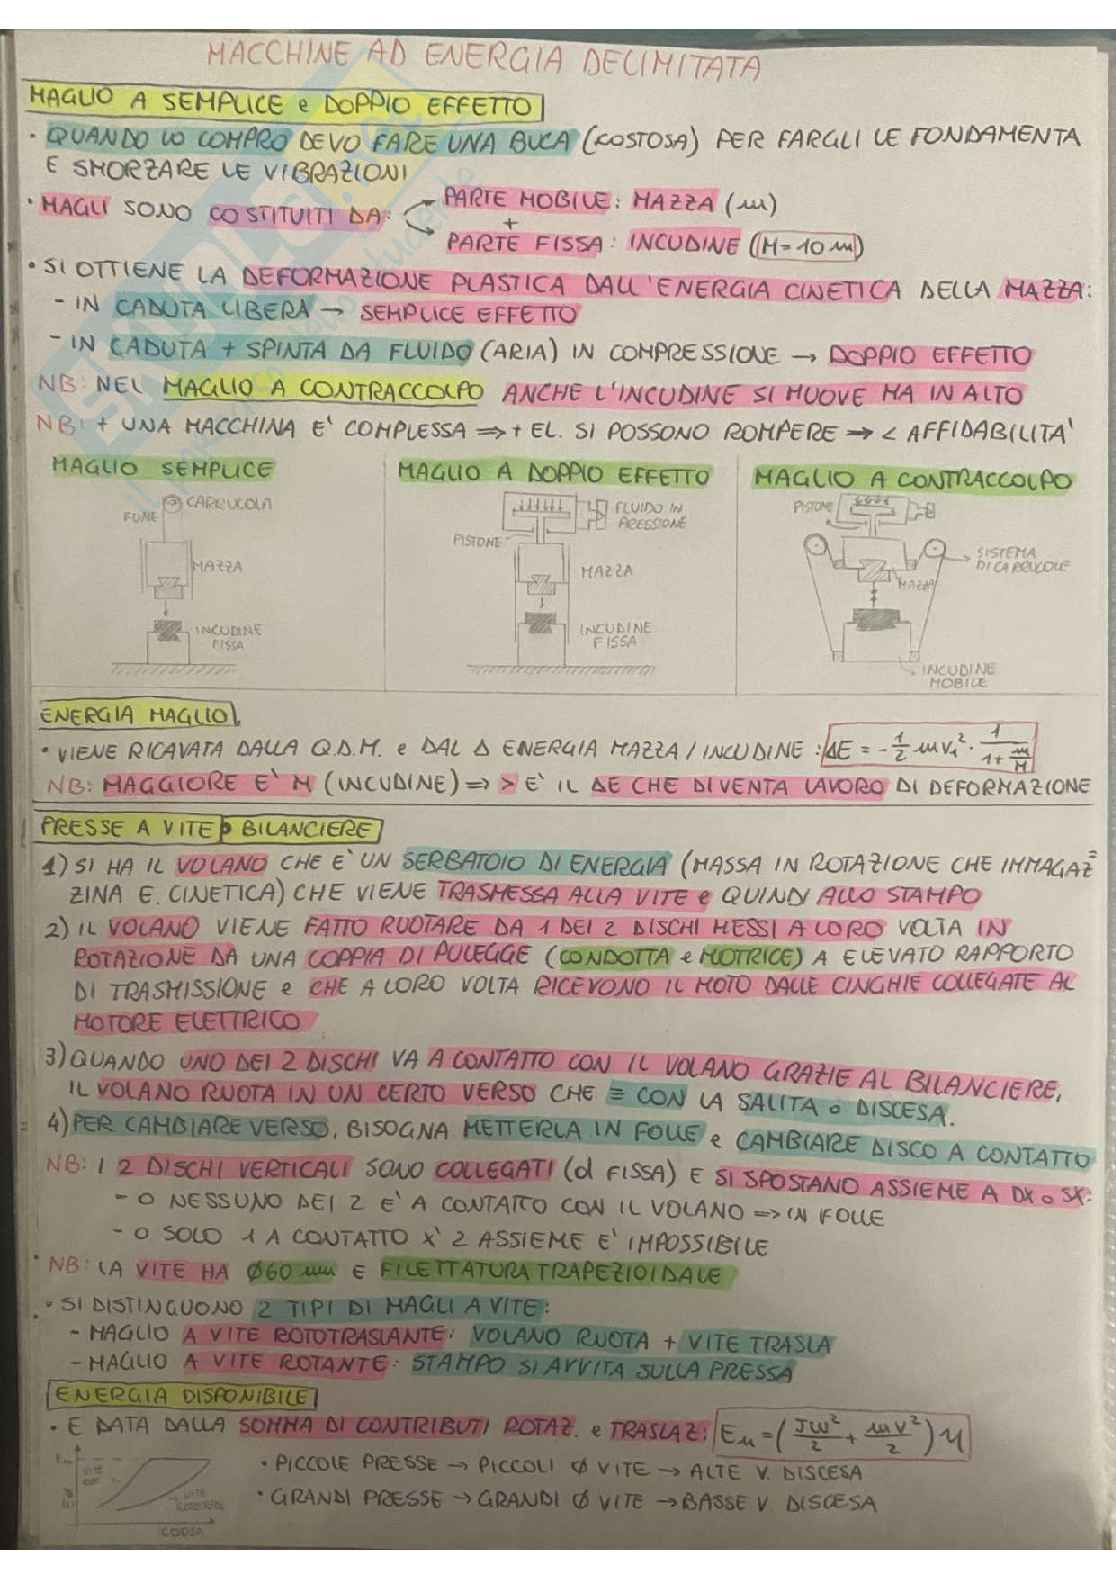 MACCHINE AD ENERGIA DELIMITATA
MAGLIO A SEMPLICE e DOPPIO EFFETTO
• QUANDO LO COMPRO DEVO FARE UNA BUCA (COSTOSA) PER FARGLI LE FONDAMENTA
E SMORZARE LE VIBRAZIONI
• MAGLI SONO COSTITUITI DA:
PARTE MOBILE: MAZZA (m)
+
PARTE FISSA: INCUDINE (M=10 m)
• SI OTTIENE LA DEFORMAZIONE PLASTICA DALL'ENERGIA CINETICA DELLA MAZZA:
- IN CADUTA LIBERA → SEMPLICE EFFETTO
- IN CADUTA + SPINTA DA FLUIDO (ARIA) IN COMPRESSIONE → DOPPIO EFFETTO
NB: NEL MAGLIO A CONTRACCOLPO ANCHE L'INCUDINE SI MUOVE MA IN ALTO
NB: + UNA MACCHINA E' COMPLESSA => + EL. SI POSSONO ROMPERE → < AFFIDABILITA'
MAGLIO SEMPLICE
CARRUCOLA
FUNE
MAZZA
INCUDINE
FISSA
MAGLIO A DOPPIO EFFETTO
FLUIDO IN
PRESSIONE
PISTONE
MAZZA
INCUDINE
FISSA
MAGLIO A CONTRACCOLPO
PISTONE
SISTEMA
DI CARRUCOLE
MAZZA
INCUDINE
MOBILE
ENERGIA MAGLIO
• VIENE RICAVATA DALLA Q.D.M. e DAL Δ ENERGIA MAZZA/INCUDINE: ΔE = -1/2 mv₁² · 1/(1+m/M)
NB: MAGGIORE E' M (INCUDINE) => > E' IL ΔE CHE DIVENTA LAVORO DI DEFORMAZIONE
PRESSE A VITE o BILANCIERE
1) SI HA IL VOLANO CHE E' UN SERBATOIO DI ENERGIA (MASSA IN ROTAZIONE CHE IMMAGAZ=
ZINA E. CINETICA) CHE VIENE TRASMESSA ALLA VITE e QUINDI ALLO STAMPO
2) IL VOLANO VIENE FATTO RUOTARE DA 1 DEI 2 DISCHI MESSI A LORO VOLTA IN
ROTAZIONE DA UNA COPPIA DI PULEGGE (CONDOTTA e MOTRICE) A ELEVATO RAPPORTO
DI TRASMISSIONE e CHE A LORO VOLTA RICEVONO IL MOTO DALLE CINGHIE COLLEGATE AL
MOTORE ELETTRICO
3) QUANDO UNO DEI 2 DISCHI VA A CONTATTO CON IL VOLANO GRAZIE AL BILANCIERE,
IL VOLANO RUOTA IN UN CERTO VERSO CHE ≡ CON LA SALITA o DISCESA.
4) PER CAMBIARE VERSO, BISOGNA METTERLA IN FOLLE e CAMBIARE DISCO A CONTATTO
NB: I 2 DISCHI VERTICALI SONO COLLEGATI (d FISSA) E SI SPOSTANO ASSIEME A DX o SX:
- O NESSUNO DEI 2 E' A CONTATTO CON IL VOLANO => IN FOLLE
- O SOLO 1 A CONTATTO X' 2 ASSIEME E' IMPOSSIBILE
• NB: LA VITE HA Ø60 mm E FILETTATURA TRAPEZIOIDALE
• SI DISTINGUONO 2 TIPI DI MAGLI A VITE:
- MAGLIO A VITE ROTOTRASLANTE: VOLANO RUOTA + VITE TRASLA
- MAGLIO A VITE ROTANTE: STAMPO SI AVVITA SULLA PRESSA
ENERGIA DISPONIBILE
• E DATA DALLA SOMMA DI CONTRIBUTI ROTAZ. e TRASLAZ: Eu = (Jω²/2 + mv²/2) η
• PICCOLE PRESSE → PICCOLI Ø VITE → ALTE V. DISCESA
• GRANDI PRESSE → GRANDI Ø VITE → BASSE V. DISCESA
CORSA